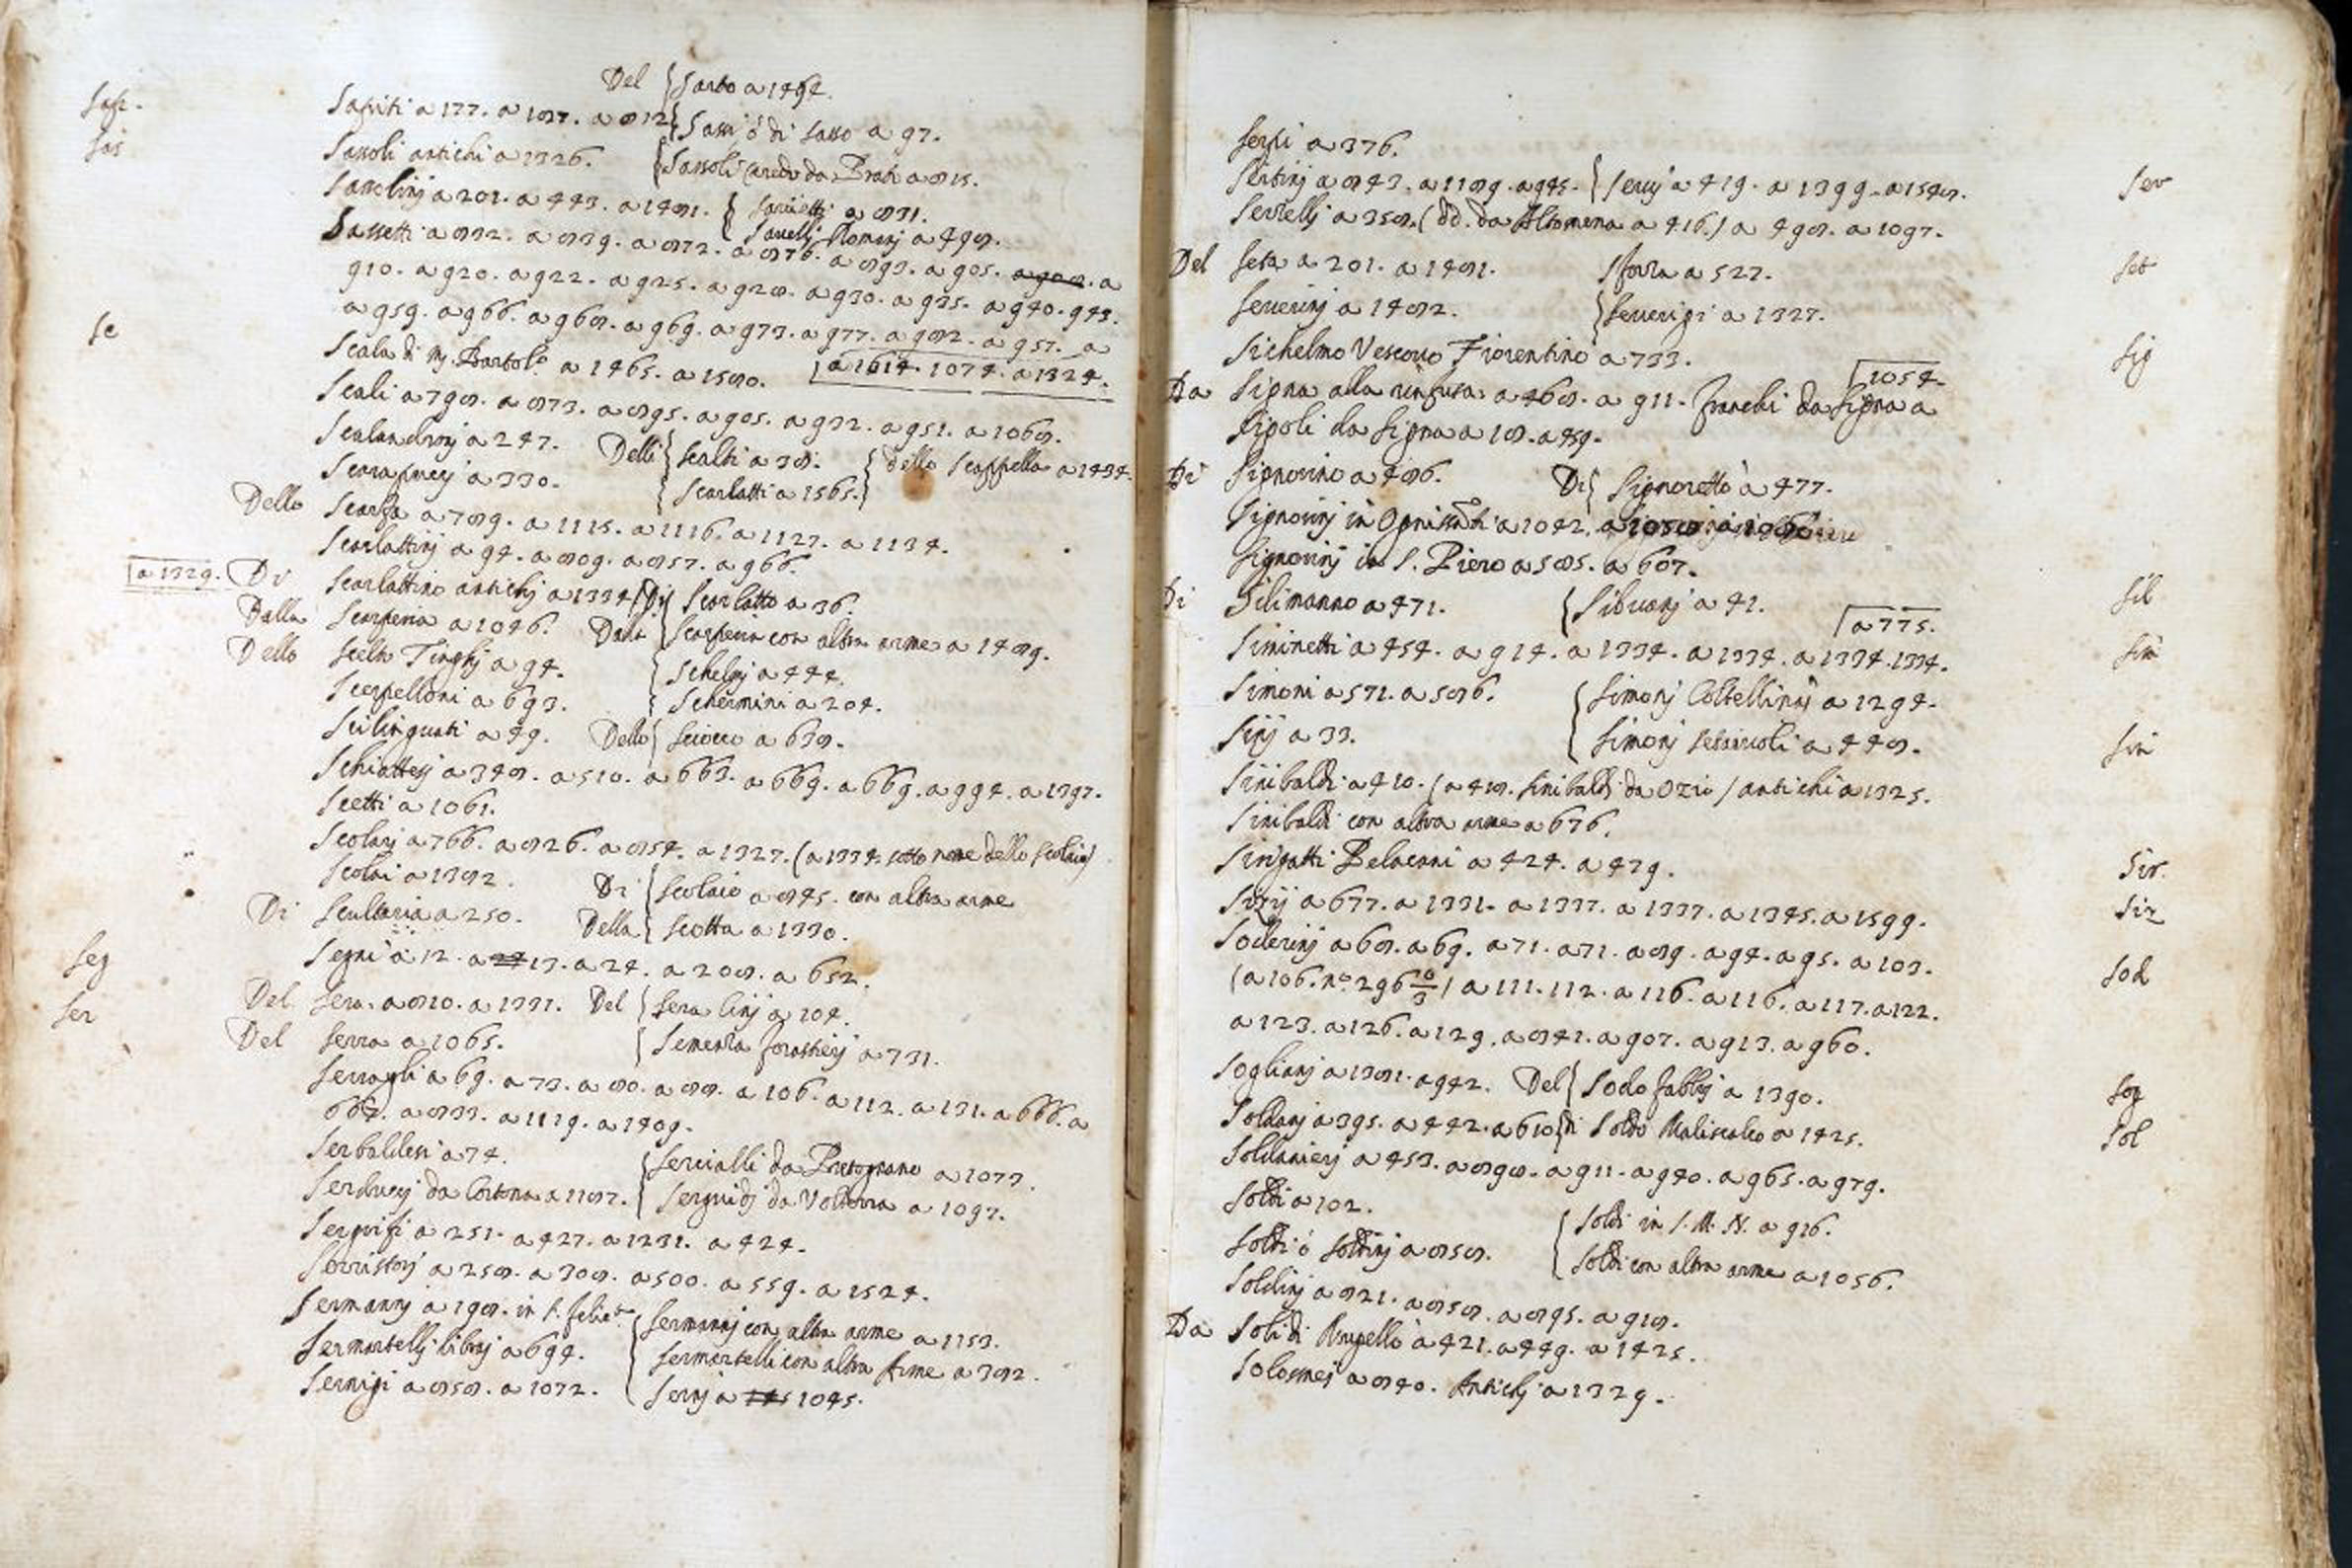 Del { Sarto a 1494.
Sap. Sapiti a 177. a 187. a 812 { Sassi ò di Sasso a 97.
Sas Sassoli antichi a 1326. { Sassoli credo da Prato a 815.
Sassolinj a 201. a 443. a 1481. { Sauietti a 831.
{ Sauellj Romanj a 498.
Sassetti a 832. a 839. a 872. a 876. a 893. a 905. a 908. a
910. a 920. a 922. a 925. a 928. a 930. a 935. a 940. 943.
a 959. a 966. a 968. a 969. a 973. a 977. a 982. a 957. a
Sc Scala di mj. Bartolo a 1465. a 1580. a 1614. 1074. a 1324.
Scali a 798. a 873. a 895. a 905. a 932. a 951. a 1068.
Scalandronj a 247. Delli { Scalti a 38. { dello Scappella a 1434.
Scarafuccj a 330. { Scarlatti a 1565. }
Dello Scarfa a 789. a 1115. a 1116. a 1127. a 1134.
Scarlattinj a 94. a 809. a 857. a 966.
a 1329. Di Scarlattino antichj a 1334 Di { Scarlatto a 36.
Dalla Scarperia a 1046. Dalla { Scarperia con altra arme a 1489.
Dello Scelto Tinghj a 94. { Schelgj a 444.
Scerpelloni a 693. { Schermini a 204.
Scilinguati a 49. Dello { Sciocco a 638.
Schiattesj a 348. a 510. a 663. a 669. a 669. a 994. a 1397.
Scetti a 1061.
Scolarj a 766. a 826. a 854. a 1327. (a 1334 sotto nome dello Scolaio)
Scolai a 1382. Di { Scolaio a 845. con altra arme
Di Scultaria a 250. Della { Scotta a 1330.
Seg Segni a 12. a 13. a 24. a 208. a 652.
Ser Del Sera. a 810. a 1331. Del { Sera linj a 104.
Del Serra a 1065. { Semenza forastierj a 731.
Serragli a 69. a 73. a 80. a 88. a 106. a 112. a 131. a 666. a
667. a 833. a 1119. a 1409.
Serbaldesi a 74. { Sercialli da a 1073.
Serduccj da Cortona a 1187. { Serguidj da Volterra a 1097.
Sergrifi a 251. a 427. a 1231. a 424.
Serristorj a 258. a 308. a 500. a 559. a 1524.
Sermannj a 198. in S. Felice { Sermannj con altra arme a 1153.
Sermartellj libraj a 694. { Sermartelli con altra Arme a 382.
Sernigi a 858. a 1072. { Sernj a 145 1045.
Serpi a 376.
Sertinj a 843. a 1189. a 945. { Seruj a 419. a 1399. a 1548. Ser
Serzellj a 358. (dd. da Altomena a 416.) a 498. a 1097.
Del Seta a 201. a 1481. Sforza a 527. Set
Seuerinj a 1482. { Seuerigi a 1327.
Sichelmo Vescouo Fiorentino a 733. Sig
1054.
Da Signa alla rinfusa a 468. a 911. Franchi da Signa a
Tipoli da Signa a 18. a 459.
Di Signorino a 486. Di { Signoretto a 477.
Signorinj in Ognissanti a 1042.
Signorinj in S. Piero a 585. a 607.
Di Silimanno a 471. { Siluanj a 41. Sil
a 775.
Siminetti a 454. a 914. a 1334. a 1334. a 1334. 1334. Sim
Simoni a 571. a 586. { Simonj Coltellinaj a 1294.
Sinj a 33. { Simonj a 448. Sin
Sinibaldi a 410. (a 418. Sinibaldi da Ozio) antichi a 1325.
Sinibaldi con altra arme a 676.
Sirigatti Belacani a 424. a 479. Sir.
Sizij a 677. a 1331. a 1337. a 1337. a 1345. a 1599. Siz
Soderinj a 68. a 69. a 71. a 71. a 89. a 94. a 95. a 103.
(a 106. no. 296 6/3) a 111. 112. a 116. a 116. a 117. a 122. Sod
a 123. a 126. a 129. a 841. a 907. a 913. a 960.
Soglianj a 1381. a 942. Del { Sodo fabbrj a 1390. Sog
Soldanj a 395. a 442. a 610 { di Soldo Maliscalco a 1425. Sol
Soldanierj a 453. a 898. a 911. a 940. a 965. a 979.
Soldi a 102. { Soldi in S. M. N. a 916.
Soldi ò Soldinj a 858. { Soldi con altra arme a 1056.
Soldinj a 821. a 858. a 895. a 918.
Da Soli di Rupello a 421. a 449. a 1425.
Solosmej a 840. Antichj a 1329.